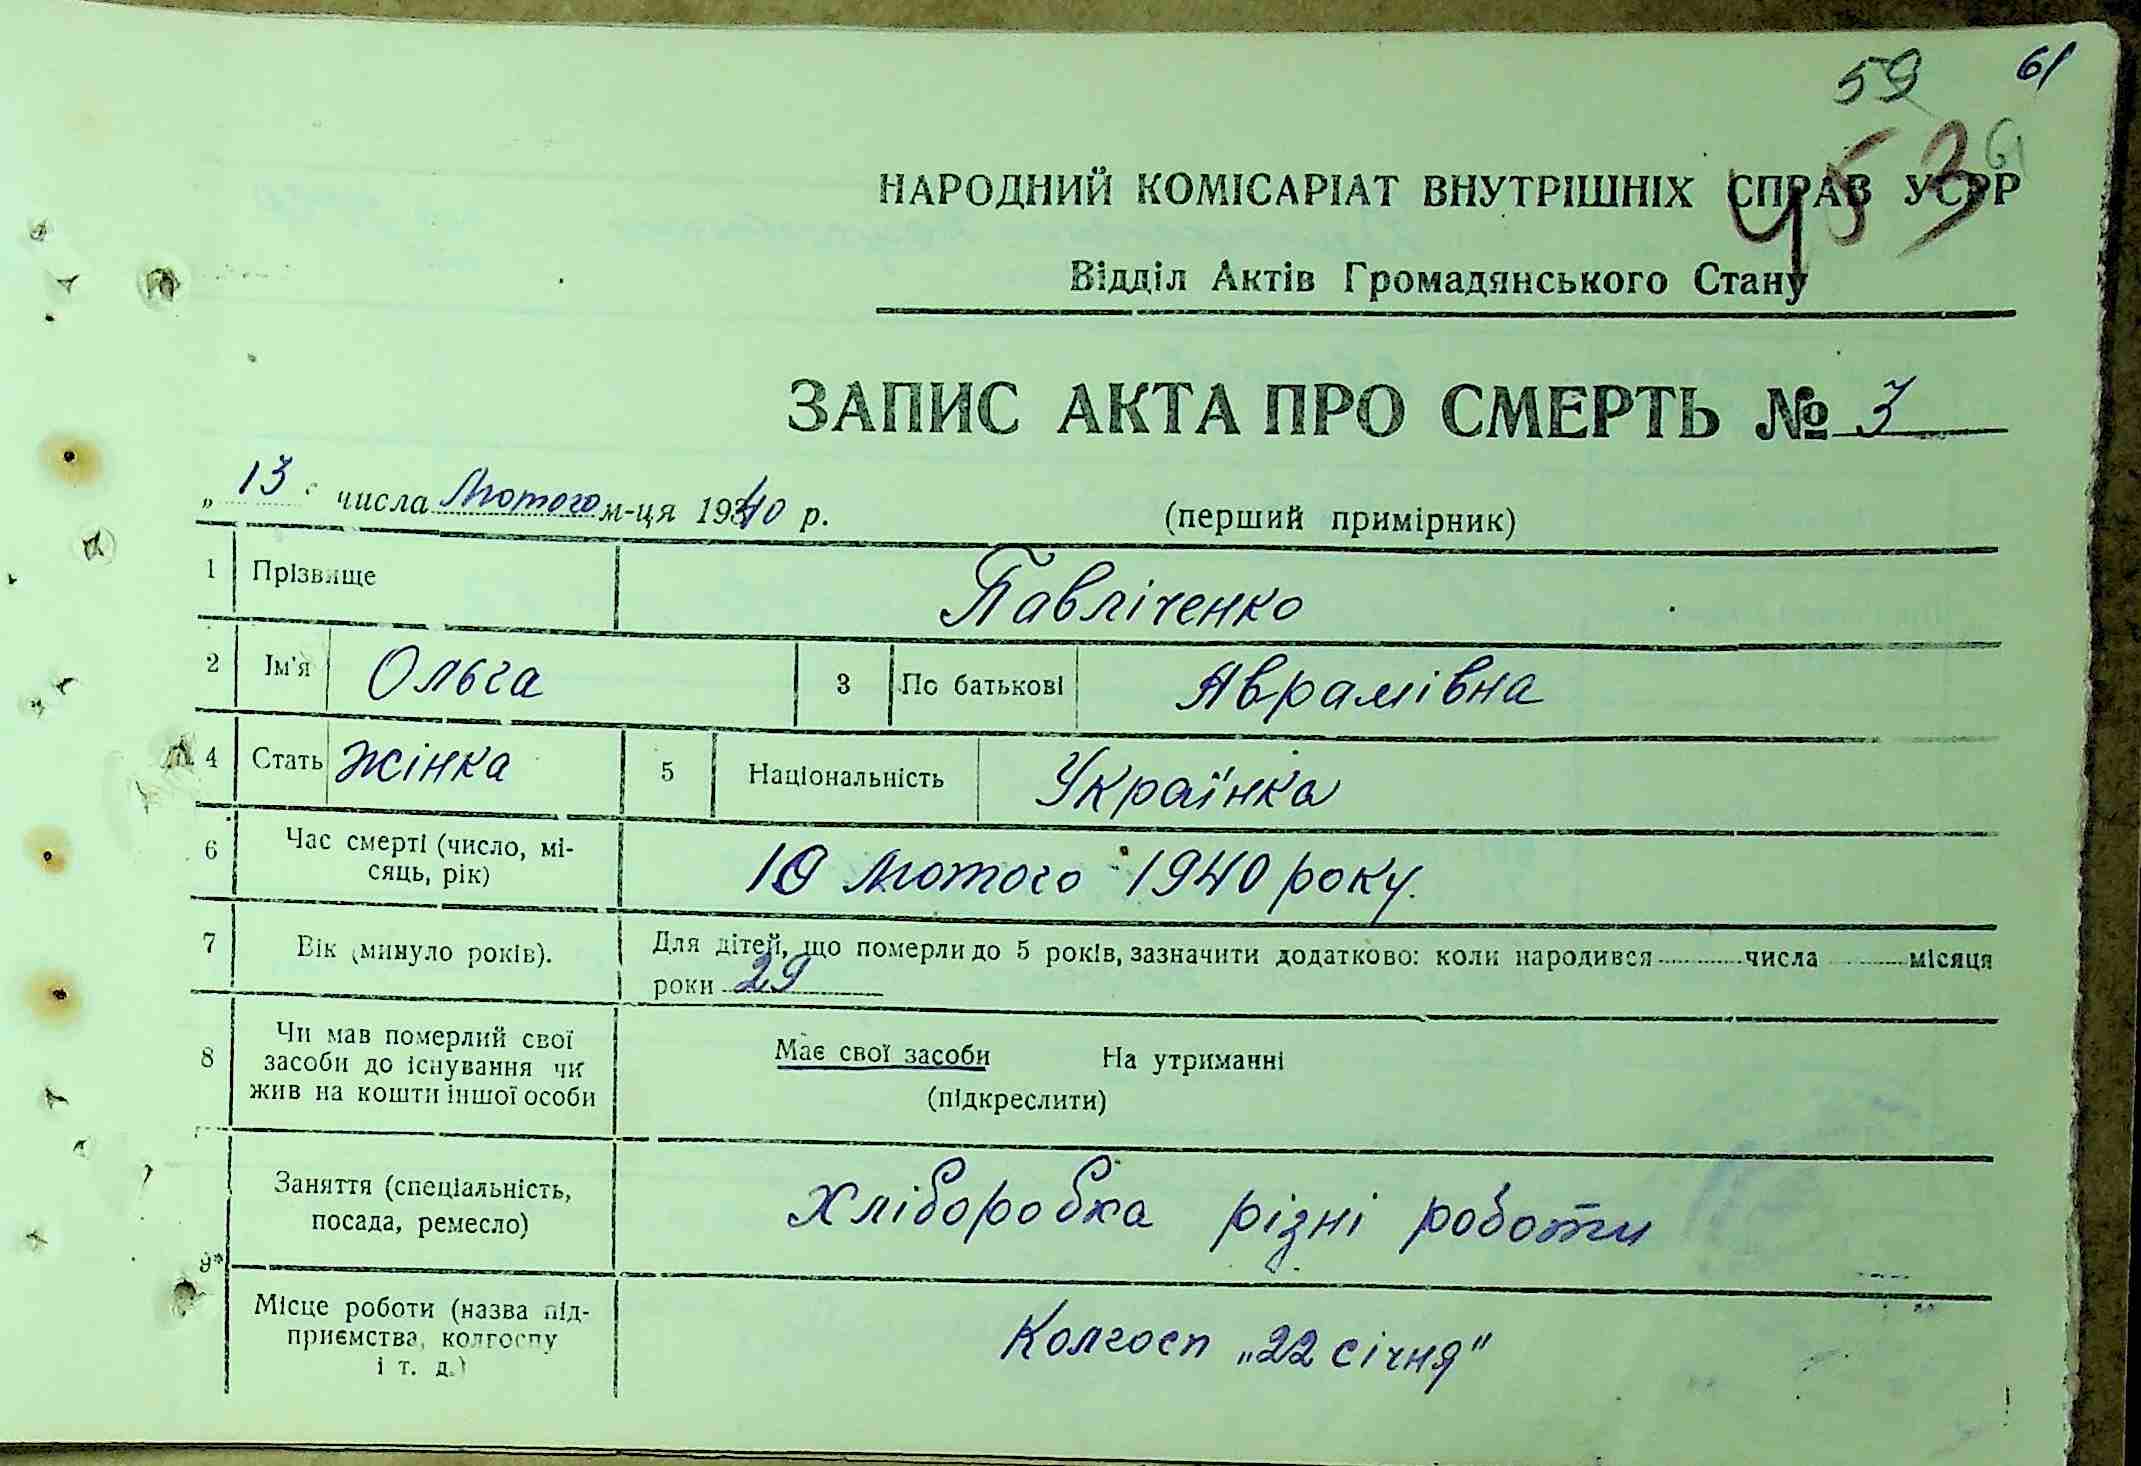 59 61
453 61
НАРОДНИЙ КОМІСАРІАТ ВНУТРІШНІХ СПРАВ УСРР
Відділ Актів Громадянського Стану
ЗАПИС АКТА ПРО СМЕРТЬ № 3
„ 13 " числа Лютого м-ця 1940 р.
(перший примірник)
1 Прізвище Павліченко
2 Ім'я Ольга 3 По батькові Аврамівна
4 Стать жінка 5 Національність Українка
6 Час смерті (число, мі-
сяць, рік)
10 Лютого 1940 року.
7 Вік (минуло років).
Для дітей, що померли до 5 років, зазначити додатково: коли народився числа місяця
роки 29
8 Чи мав померлий свої
засоби до існування чи
жив на кошти іншої особи
Має свої засоби На утриманні
(підкреслити)
9 Заняття (спеціальність,
посада, ремесло)
Хліборобка різні роботи
Місце роботи (назва під-
приємства, колгоспу
і т. д.)
Колгосп „22 січня"